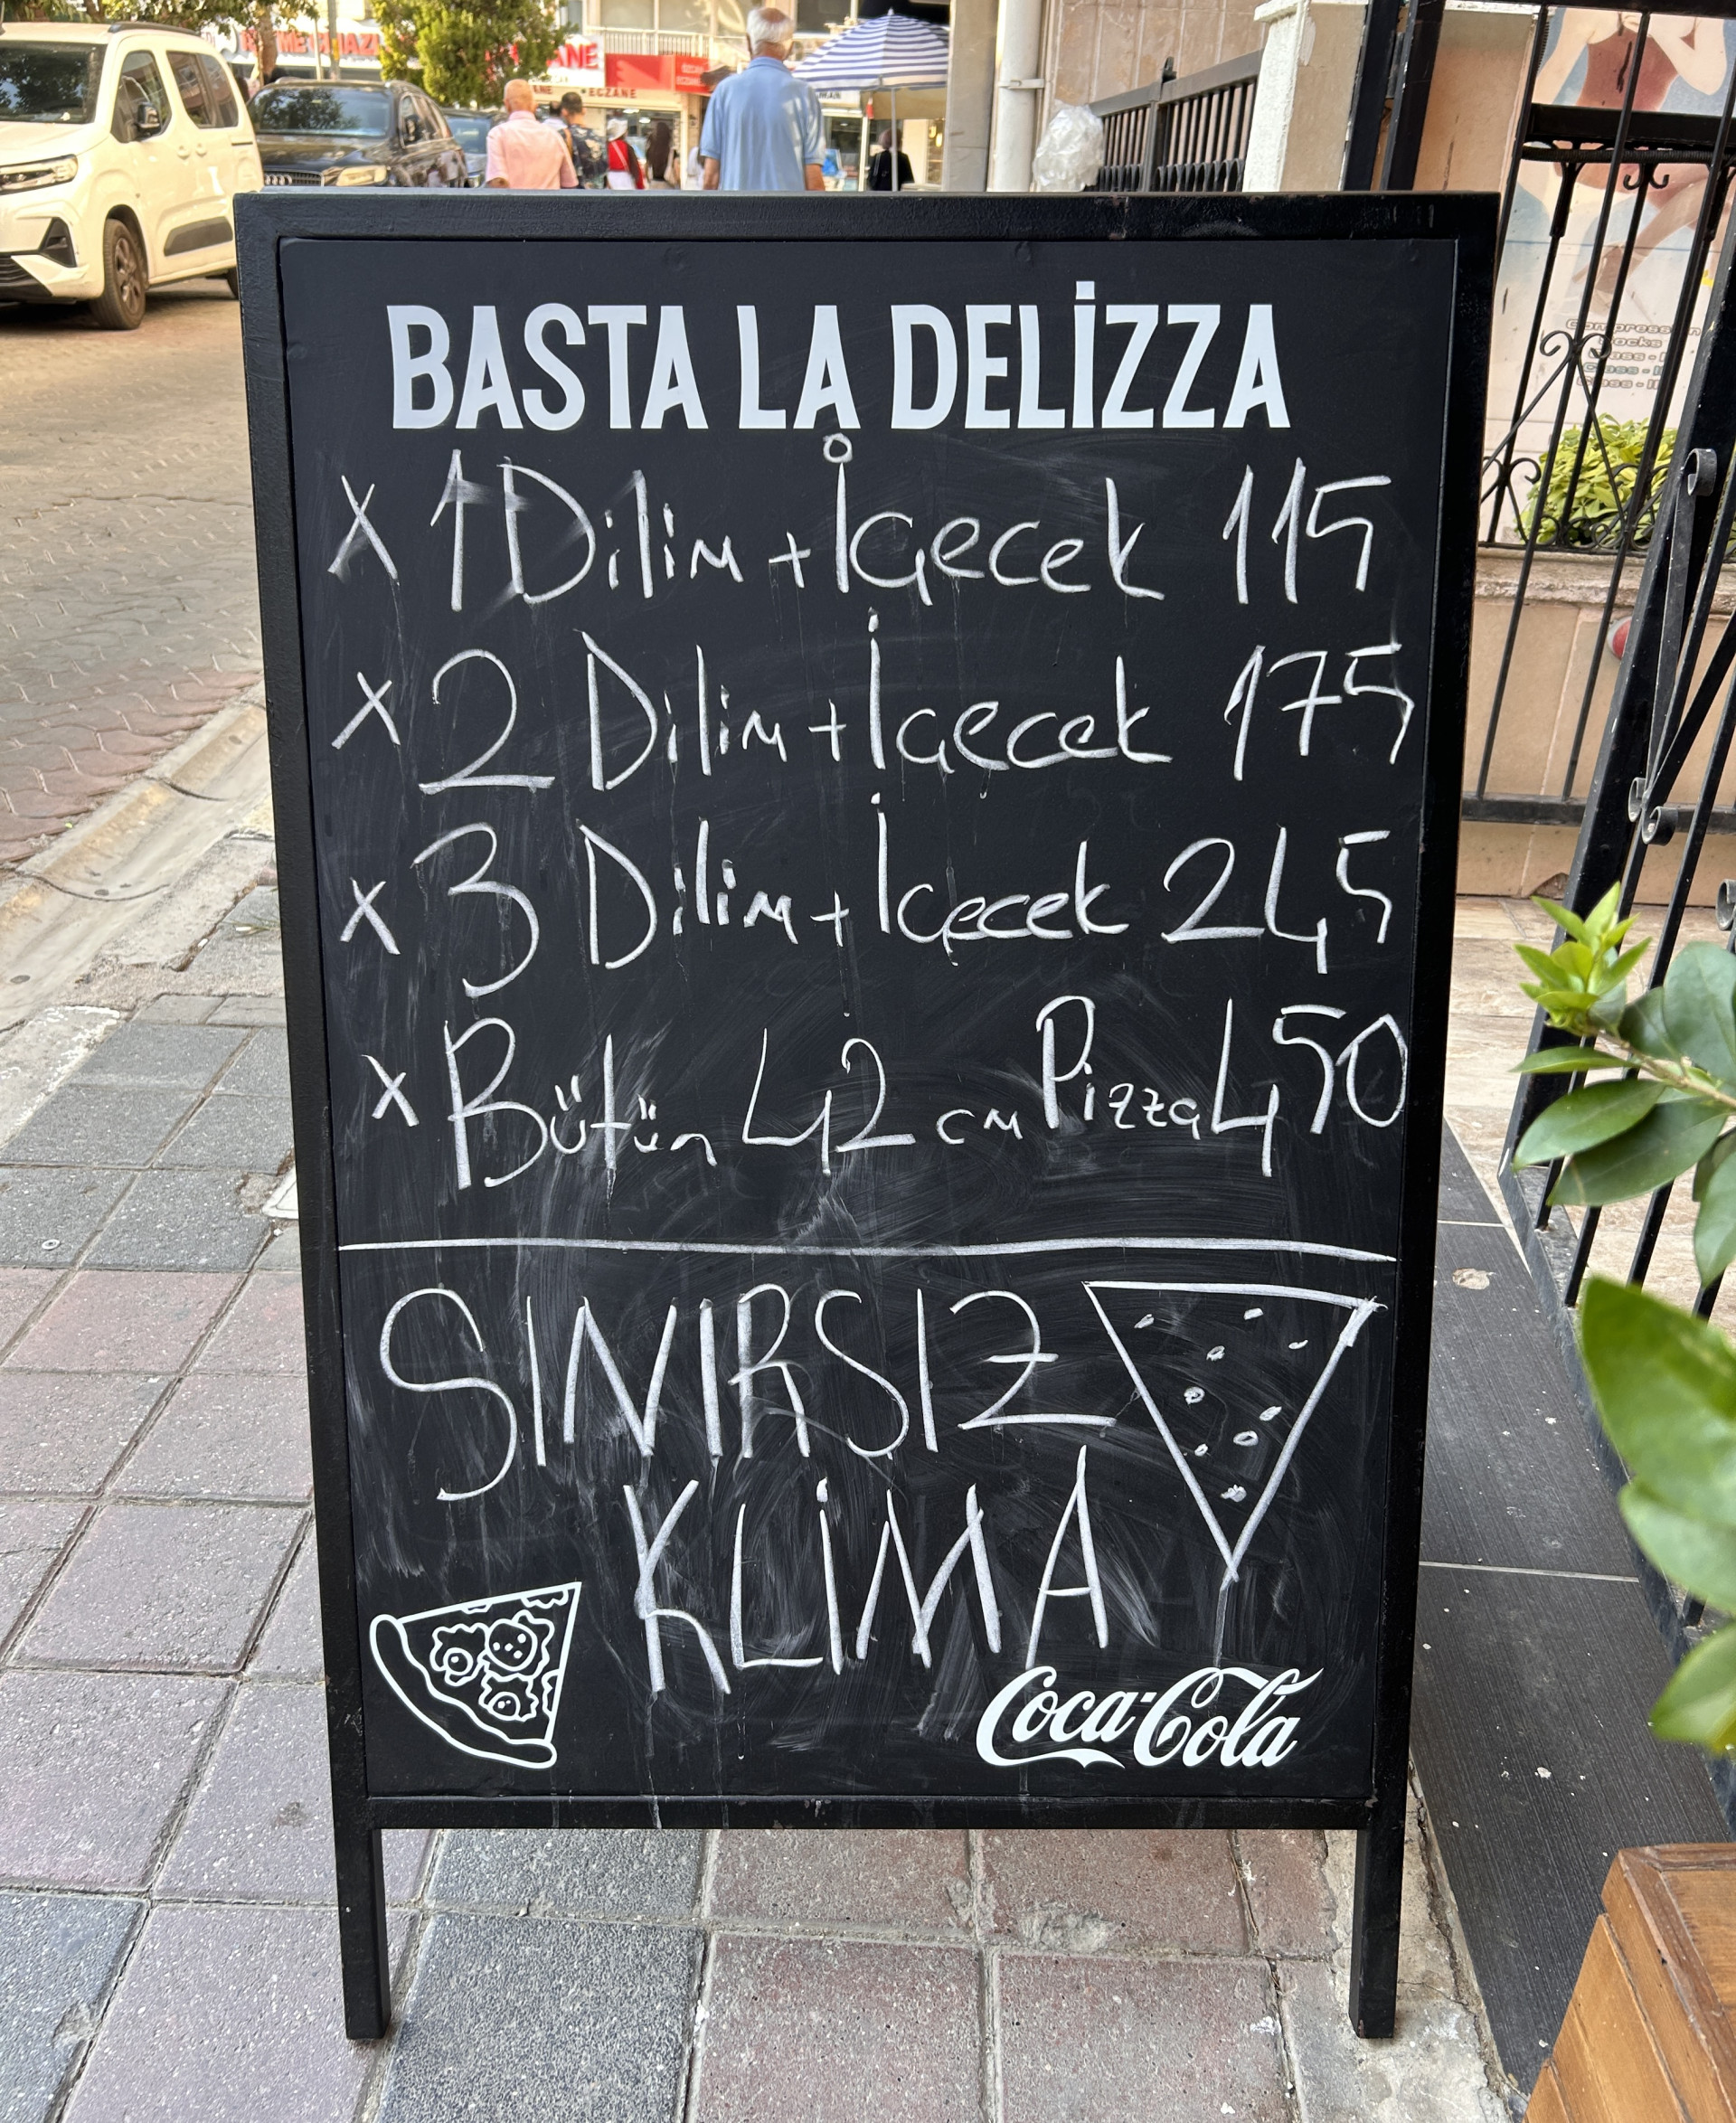 ECZANE
BASTA LA DELİZZA
x 1 Dilim + İçecek 115
x 2 Dilim + İçecek 175
x 3 Dilim + İçecek 245
x Bütün 42 cm Pizza 450
SINIRSIZ
KLİMA
Coca-Cola